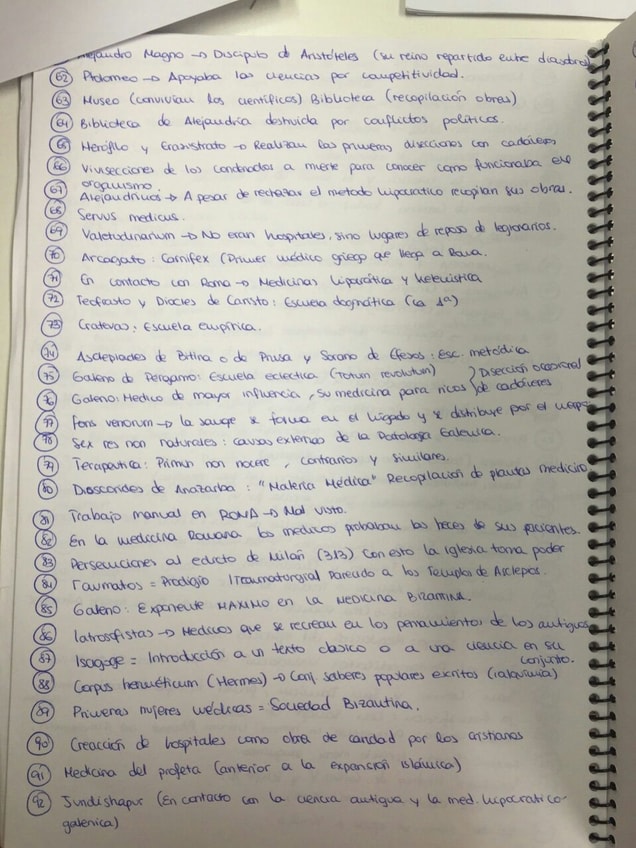 Alejandro Magno → Discipulo de Aristóteles (su reino repartido entre
62 Ptolomeo → Apoyaba las ciencias por competitividad.
63 Museo (convivian los científicos) Biblioteca (recopilación obras)
64 Biblioteca de Alejandría destruida por conflictos políticos.
65 Herófilo y Erasistrato → Realizan las primeras disecciones con cadáveres
66 Vivisecciones de los condenados a muerte para conocer como funcionaba el
organismo.
67 Alejandrinos → A pesar de rechazar el metodo hipocratico recopilan sus obras.
68 Servus medicus.
69 Valetudinarium → No eran hospitales, sino lugares de reposo de legionarios.
70 Arcagato: Carnifex (Primer médico griego que llega a Roma.
71 En contacto con Roma → Medicinas hipocrática y helenística
72 Teofrasto y Diocles de Caristo: Escuela dogmática (la 1ª)
73 Cratevas: Escuela empírica.
74 Asclepiades de Bitinia o de Prusa y Sorano de Efesos: Esc. metódica
75 Galeno de Pergamo: Escuela eclectica (Totum revolutum) } Disección ocasional
76 Galeno: Medico de mayor influencia, su medicina para ricos } de cadáveres
77 Fons venorum → la sangre se forma en el hígado y se distribuye por el cuerpo
78 Sex res non naturales: causas externas de la Patología Galenica.
79 Terapeutica: Primun non nocere, contrarios y similares.
80 Dioscorides de Anazarba: "Materia Médica" Recopilación de plantas medicin
81 Trabajo manual en ROMA → Mal visto.
82 En la medicina Romana los medicos probaban las heces de sus pacientes.
83 Persecuciones al edicto de Milán (313) con esto la iglesia toma poder
84 Taumatos = Prodigio / Traumaturgial Parecido a los Templos de Asclepios.
85 Galeno: Exponente MAXIMO en la MEDICINA BIZANTINA.
86 Iatrosfistas → Medicos que se recrean en los pensamientos de los antiguos
87 Isagoge = Introducción a un texto clasico o a una ciencia en su
conjunto.
88 Corpus hermeticum (Hermes) → Conj saberes populares escritos (alquimia)
89 Primeras mujeres médicas = Sociedad Bizantina.
90 Creacción de hospitales como obra de caridad por los cristianos
91 Medicina del profeta (anterior a la expansión islámica)
92 Jundishapur (En contacto con la ciencia antigua y la med. hipocratico-
galenica)